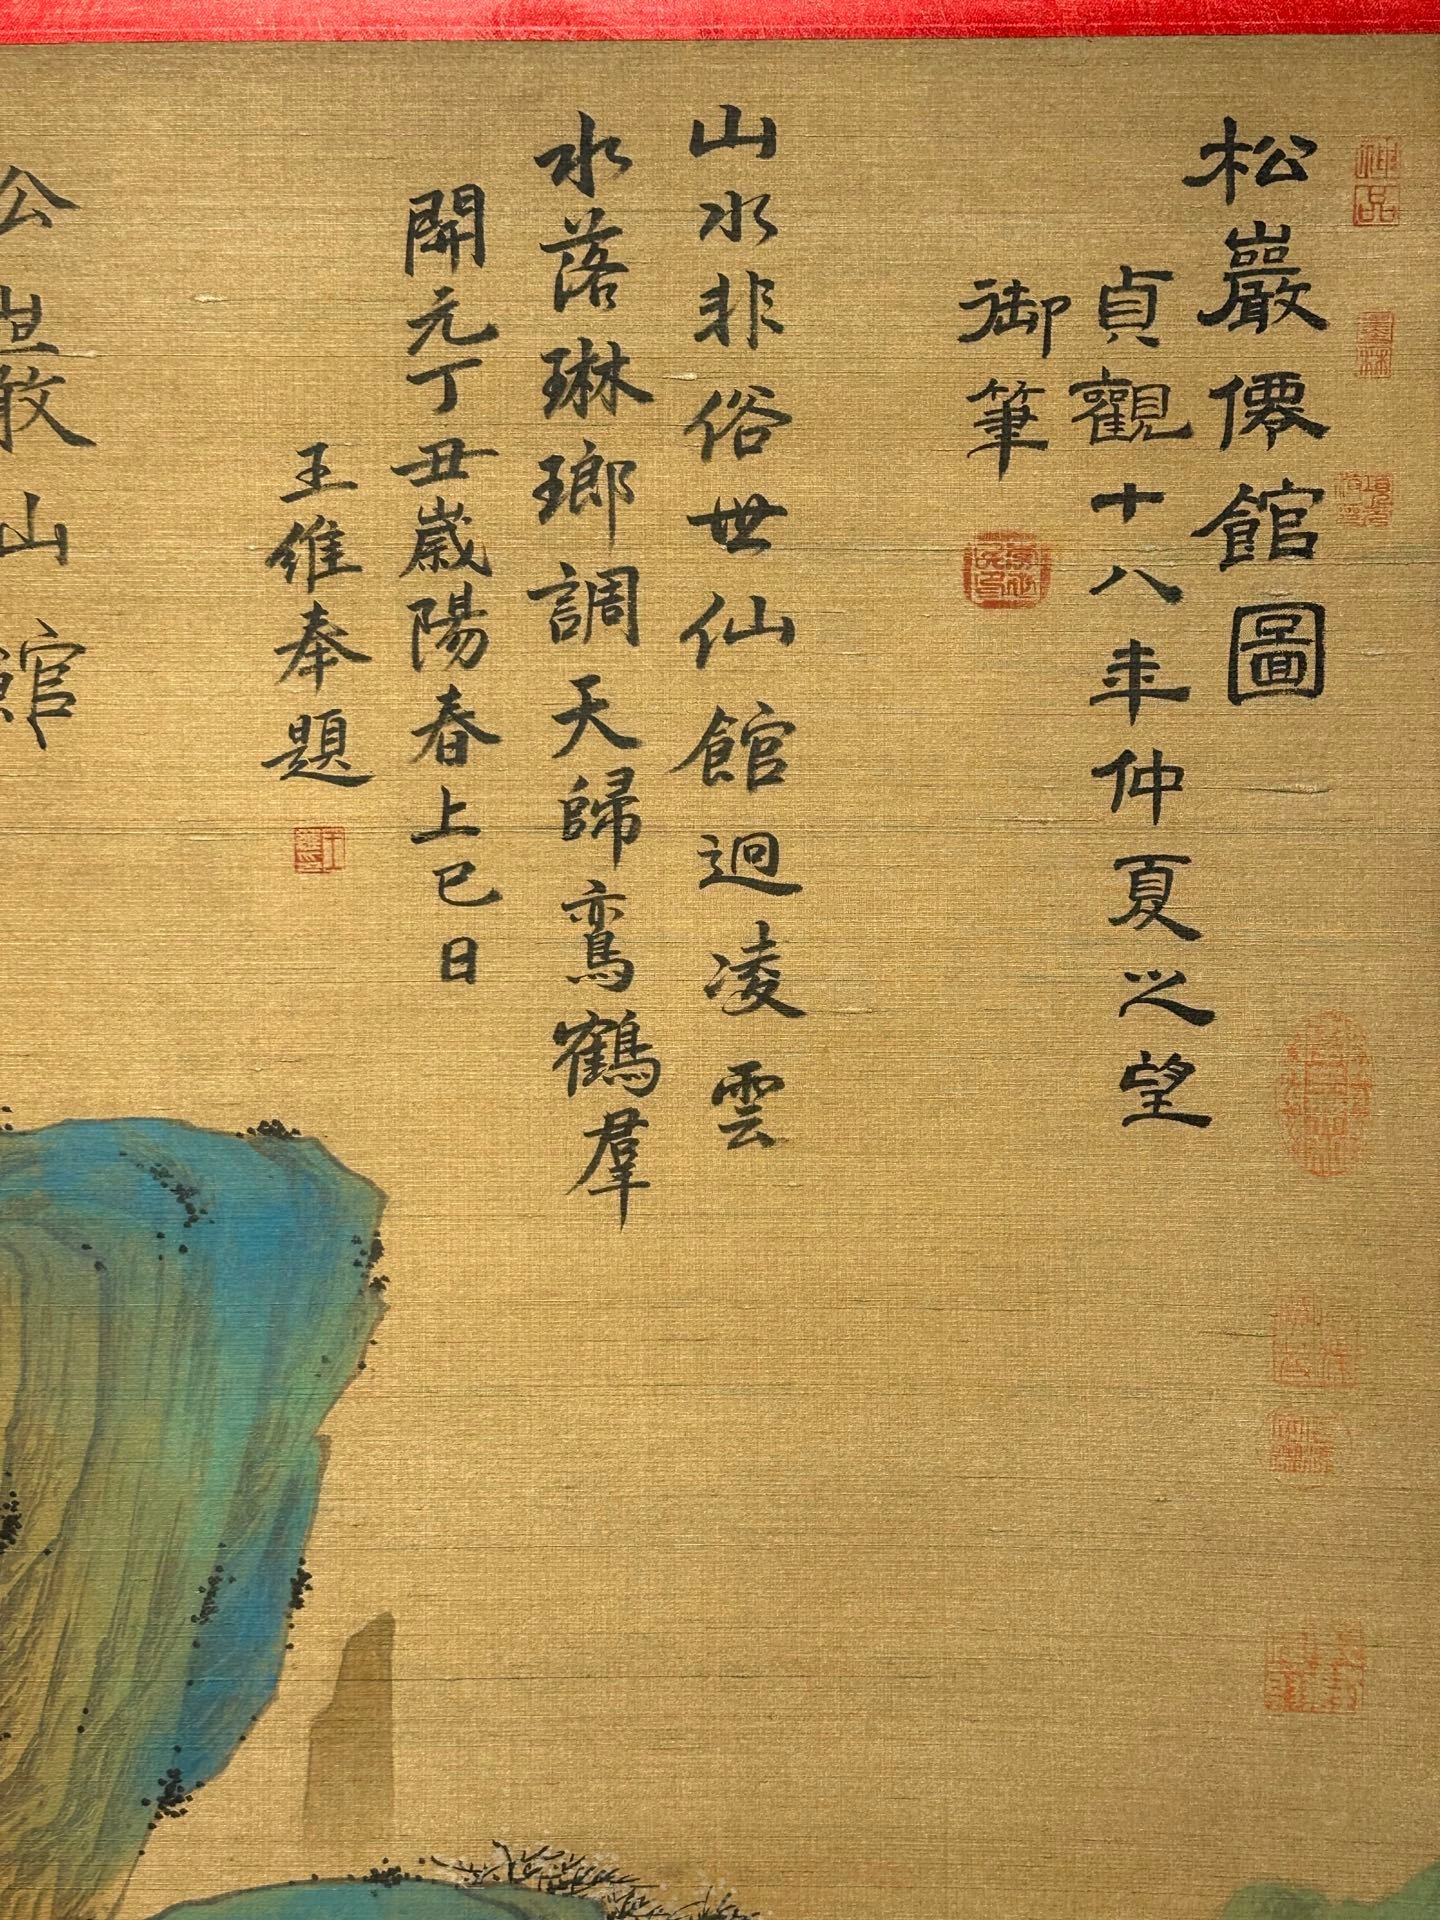 神品
墨林
松巖僊館圖
貞觀十八年仲夏之望
御筆
山水非俗世仙館迥凌雲
水落琳瑯調天歸鸞鶴羣
開元丁丑歲陽春上巳日
王維奉題
王維
山館